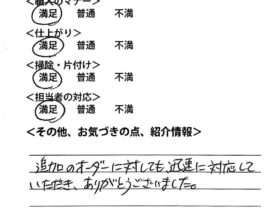 <職人のマナー>
満足 普通 不満
<仕上がり>
満足 普通 不満
<掃除・片付け>
満足 普通 不満
<担当者の対応>
満足 普通 不満
<その他、お気づきの点、紹介情報>
追加のオーダーに対しても迅速に対応して
いただき、ありがとうございました。